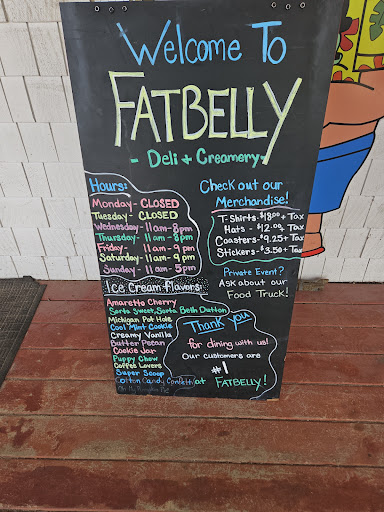 Welcome To
FATBELLY
- Deli + Creamery -
Hours:
Monday - CLOSED
Tuesday - CLOSED
Wednesday - 11am - 8pm
Thursday - 11am - 8pm
Friday - 11am - 9pm
Saturday - 11am - 9pm
Sunday - 11am - 5pm
Check out our
Merchandise!
T-Shirts - $18.00 + Tax
Hats - $12.00 + Tax
Coasters - $9.25 + Tax
Stickers - $3.50 + Tax
Private Event?
ASK about our
Food Truck!
Ice Cream flavors:
Amaretto Cherry
Sorta Sweet, Sorta Beth Dutton
Michigan Pot Hole
Cool Mint Cookie
Creamy Vanilla
Butter Pecan
Cookie Jar
Puppy Chow
Coffee Lovers
Super Scoop
Cotton Candy Confetti
Thank you
for dining with us!
Our customers are
#1
at FATBELLY!